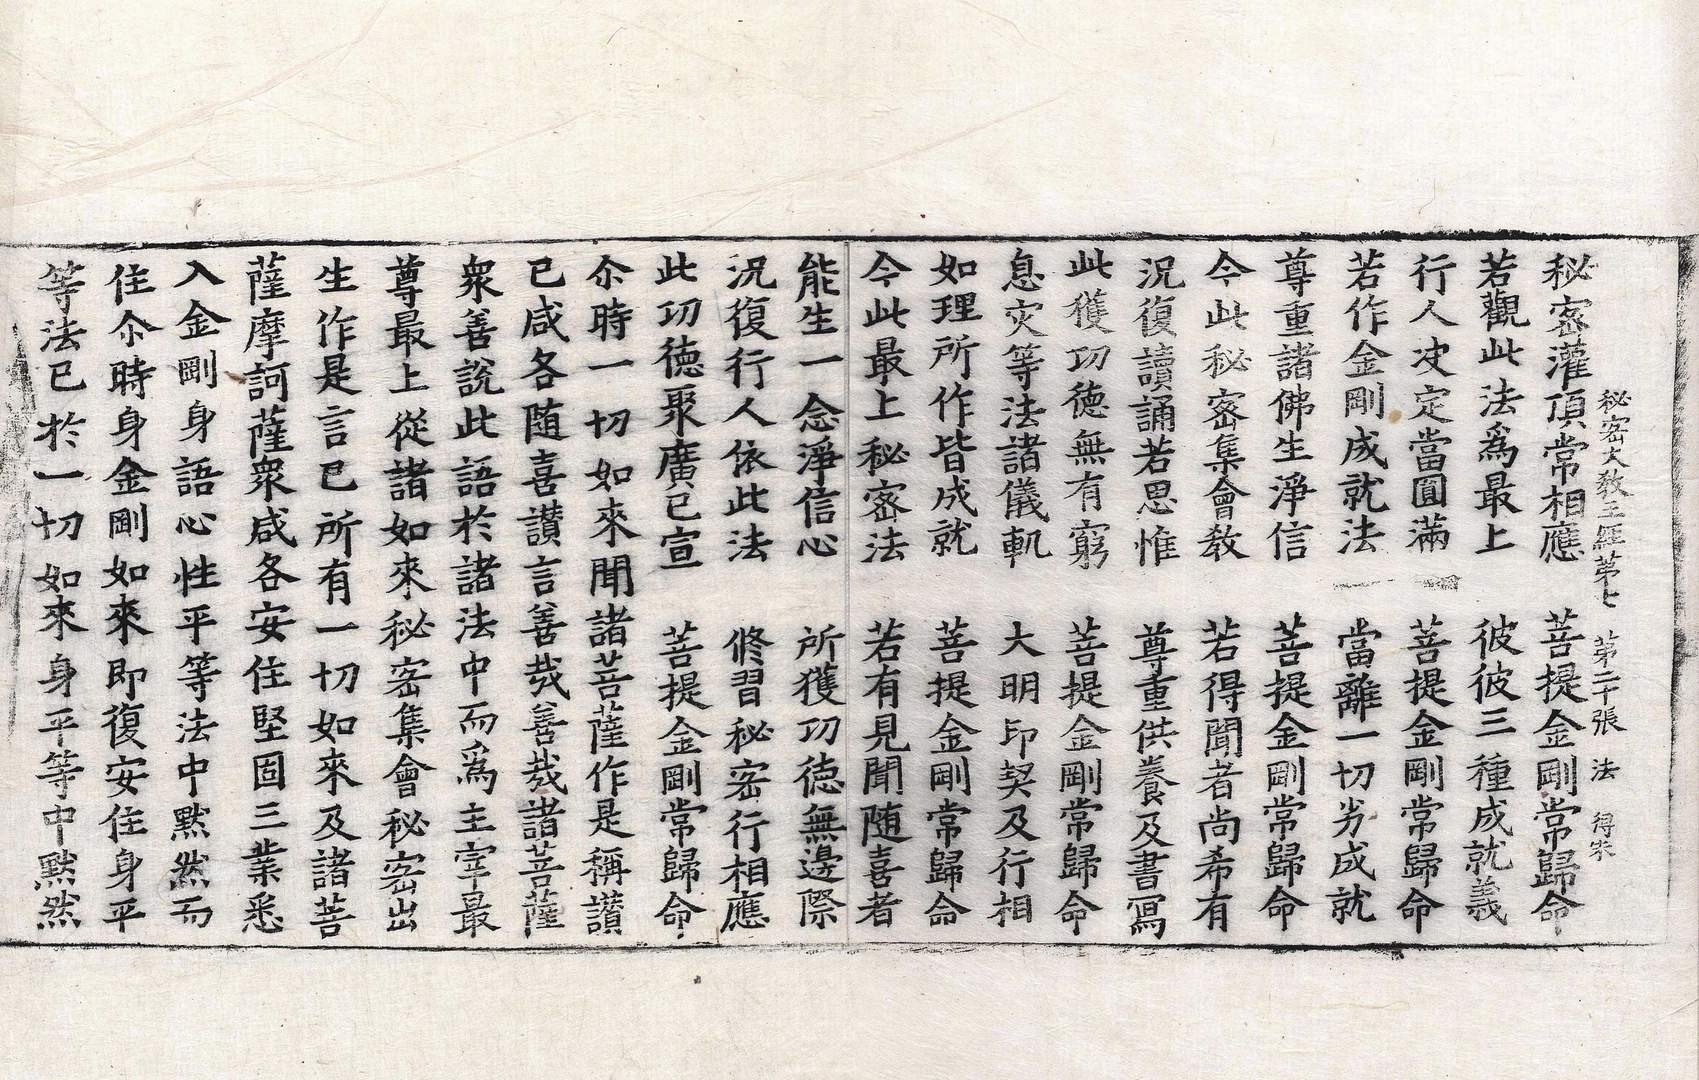 秘密大教王經第七 第二十張 法 得宋
秘密灌頂常相應 菩提金剛常歸命
若觀此法爲最上 彼彼三種成就義
行人决定當圓滿 菩提金剛常歸命
若作金剛成就法 當離一切劣成就
尊重諸佛生淨信 菩提金剛常歸命
今此秘密集會教 若得聞者尚希有
况復讀誦若思惟 尊重供養及書寫
此獲功德無有窮 菩提金剛常歸命
息灾等法諸儀軌 大明印契及行相
如理所作皆成就 菩提金剛常歸命
今此最上秘密法 若有見聞随喜者
能生一念淨信心 所獲功德無邊際
况復行人依此法 修習秘密行相應
此功德聚廣已宣 菩提金剛常歸命
尒時一切如來聞諸菩薩作是稱讃
已咸各随喜讃言善哉善哉諸菩薩
衆善說此語於諸法中而爲主宰最
尊最上從諸如來秘密集會秘密出
生作是言已所有一切如來及諸菩
薩摩訶薩衆咸各安住堅固三業悉
入金剛身語心性平等法中默然而
住尒時身金剛如來即復安住身平
等法已於一切如來身平等中默然